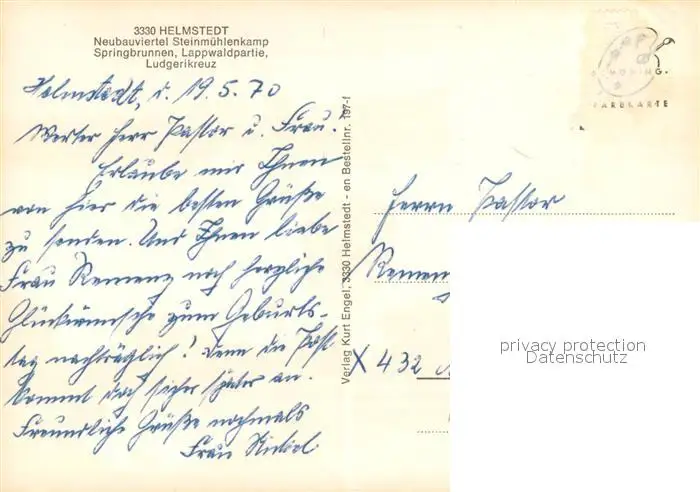 3330 HELMSTEDT
Neubauviertel Steinmühlenkamp
Springbrunnen, Lappwaldpartie,
Ludgerikreuz
Helmstedt, d. 19.5.70
Werter Herr Pastor u. Frau.
Erlaube mir Ihnen
von hier die besten Grüße
zu senden. Und Ihnen liebe
Frau Remenz noch herzliche
Glückwünsche zum Geburts-
tag nachträglich! Denn die Post
kommt doch sicher später an.
Freundliche Grüße nochmals
Frau Nickel
Verlag Kurt Engel, 3330 Helmstedt - en Bestellnr. 197-f
FARBKARTE
Herrn Pastor
Remen
X 432
privacy protection
Datenschutz